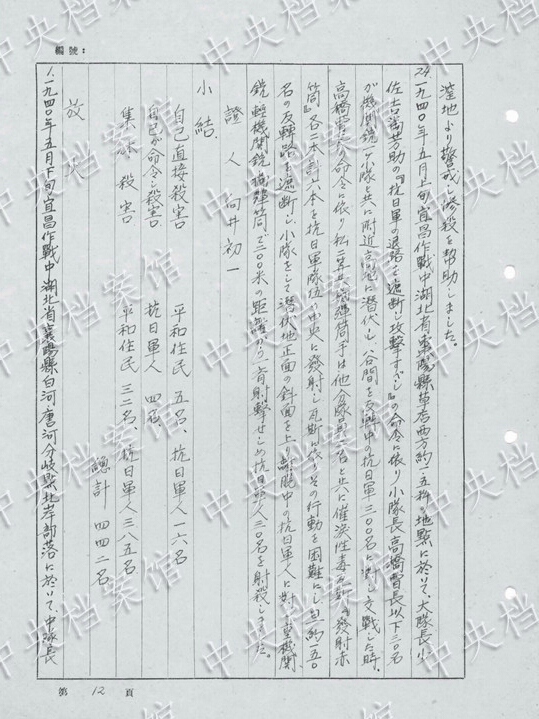 編號:
溼地より警戒し惨殺を幇助しました。
24.一九四〇年五月上旬宜昌作戰中湖北省棗陽縣草店西方約一.五粁の地點に於いて、大隊長少
佐古賀芳助の『抗日軍の退路を遮断し攻撃すべし』の命令に依り小隊長高橋曹長以下三〇名
が機関銃小隊と共に附近高地に潜伏し、谷間を反轉中の抗日軍三〇〇名に對し交戰した時、
高橋曹長の命令に依り私擲弾筒手は他分隊員二名と共に催涙性毒瓦斯『發射赤
筒』各二本計六本を抗日軍隊伍の中央に發射し瓦斯に依りその行動を困難にし、且約一五〇
名の反轉路を遮断し、小隊をして潜伏地正面の斜面を上り離脱中の抗日軍人に對し重機関
銃輕機関銃擲弾筒で二〇〇米の距離から一斉射撃せしめ抗日軍人三〇名を射殺しました。
證人 向井初一
小結、
自己直接殺害 平和住民 五名、抗日軍人一六名
自己命令し殺害 抗日軍人 四名、
集体殺害 平和住民 三二名、抗日軍人三八五名
總計 四四二名
放火
1.一九四〇年五月下旬宜昌作戰中湖北省襄陽縣白河唐河分岐點北岸部落に於いて、中隊長
第 12 頁
中央档案馆